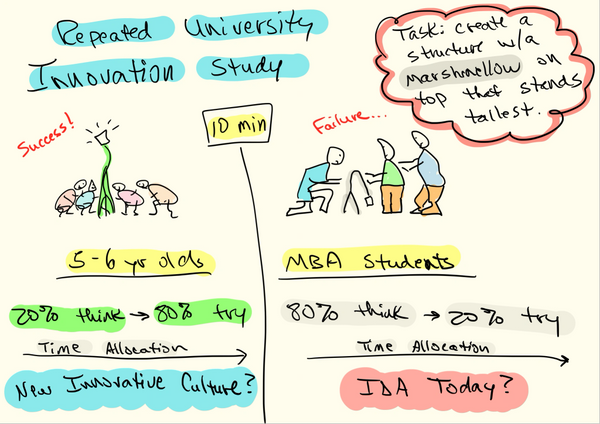 Repeated University
Innovation Study
Task: create a
structure w/a
marshmallow on
top that stands
tallest.
10 min
Success!
Failure...
5-6 yr olds
20% think → 80% try
Time Allocation
New Innovative Culture?
MBA Students
80% think → 20% try
Time Allocation
IDA Today?